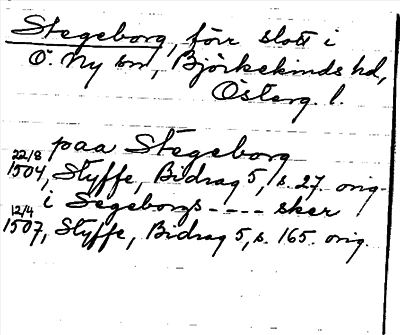 Stegeborg, förr slott i
Ö. Ny sn, Björkekinds hd,
Österg. l.
paa Stegeborg
22/8 1504, Styffe, Bidrag 5, s. 27. orig.
i Segeborgs ---- sker
12/4 1507, Styffe, Bidrag 5, s. 165. orig.